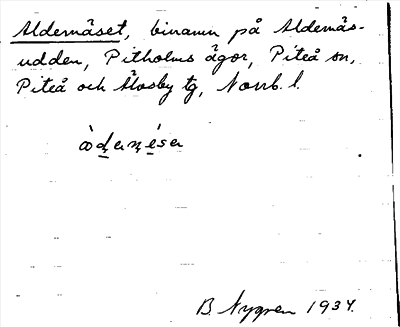 Aldernäset, binamn på Aldernäs-
udden, Pitholms ägor, Piteå sn,
Piteå och Älvsby tg, Norrb. l.
B. Nygren 1934.